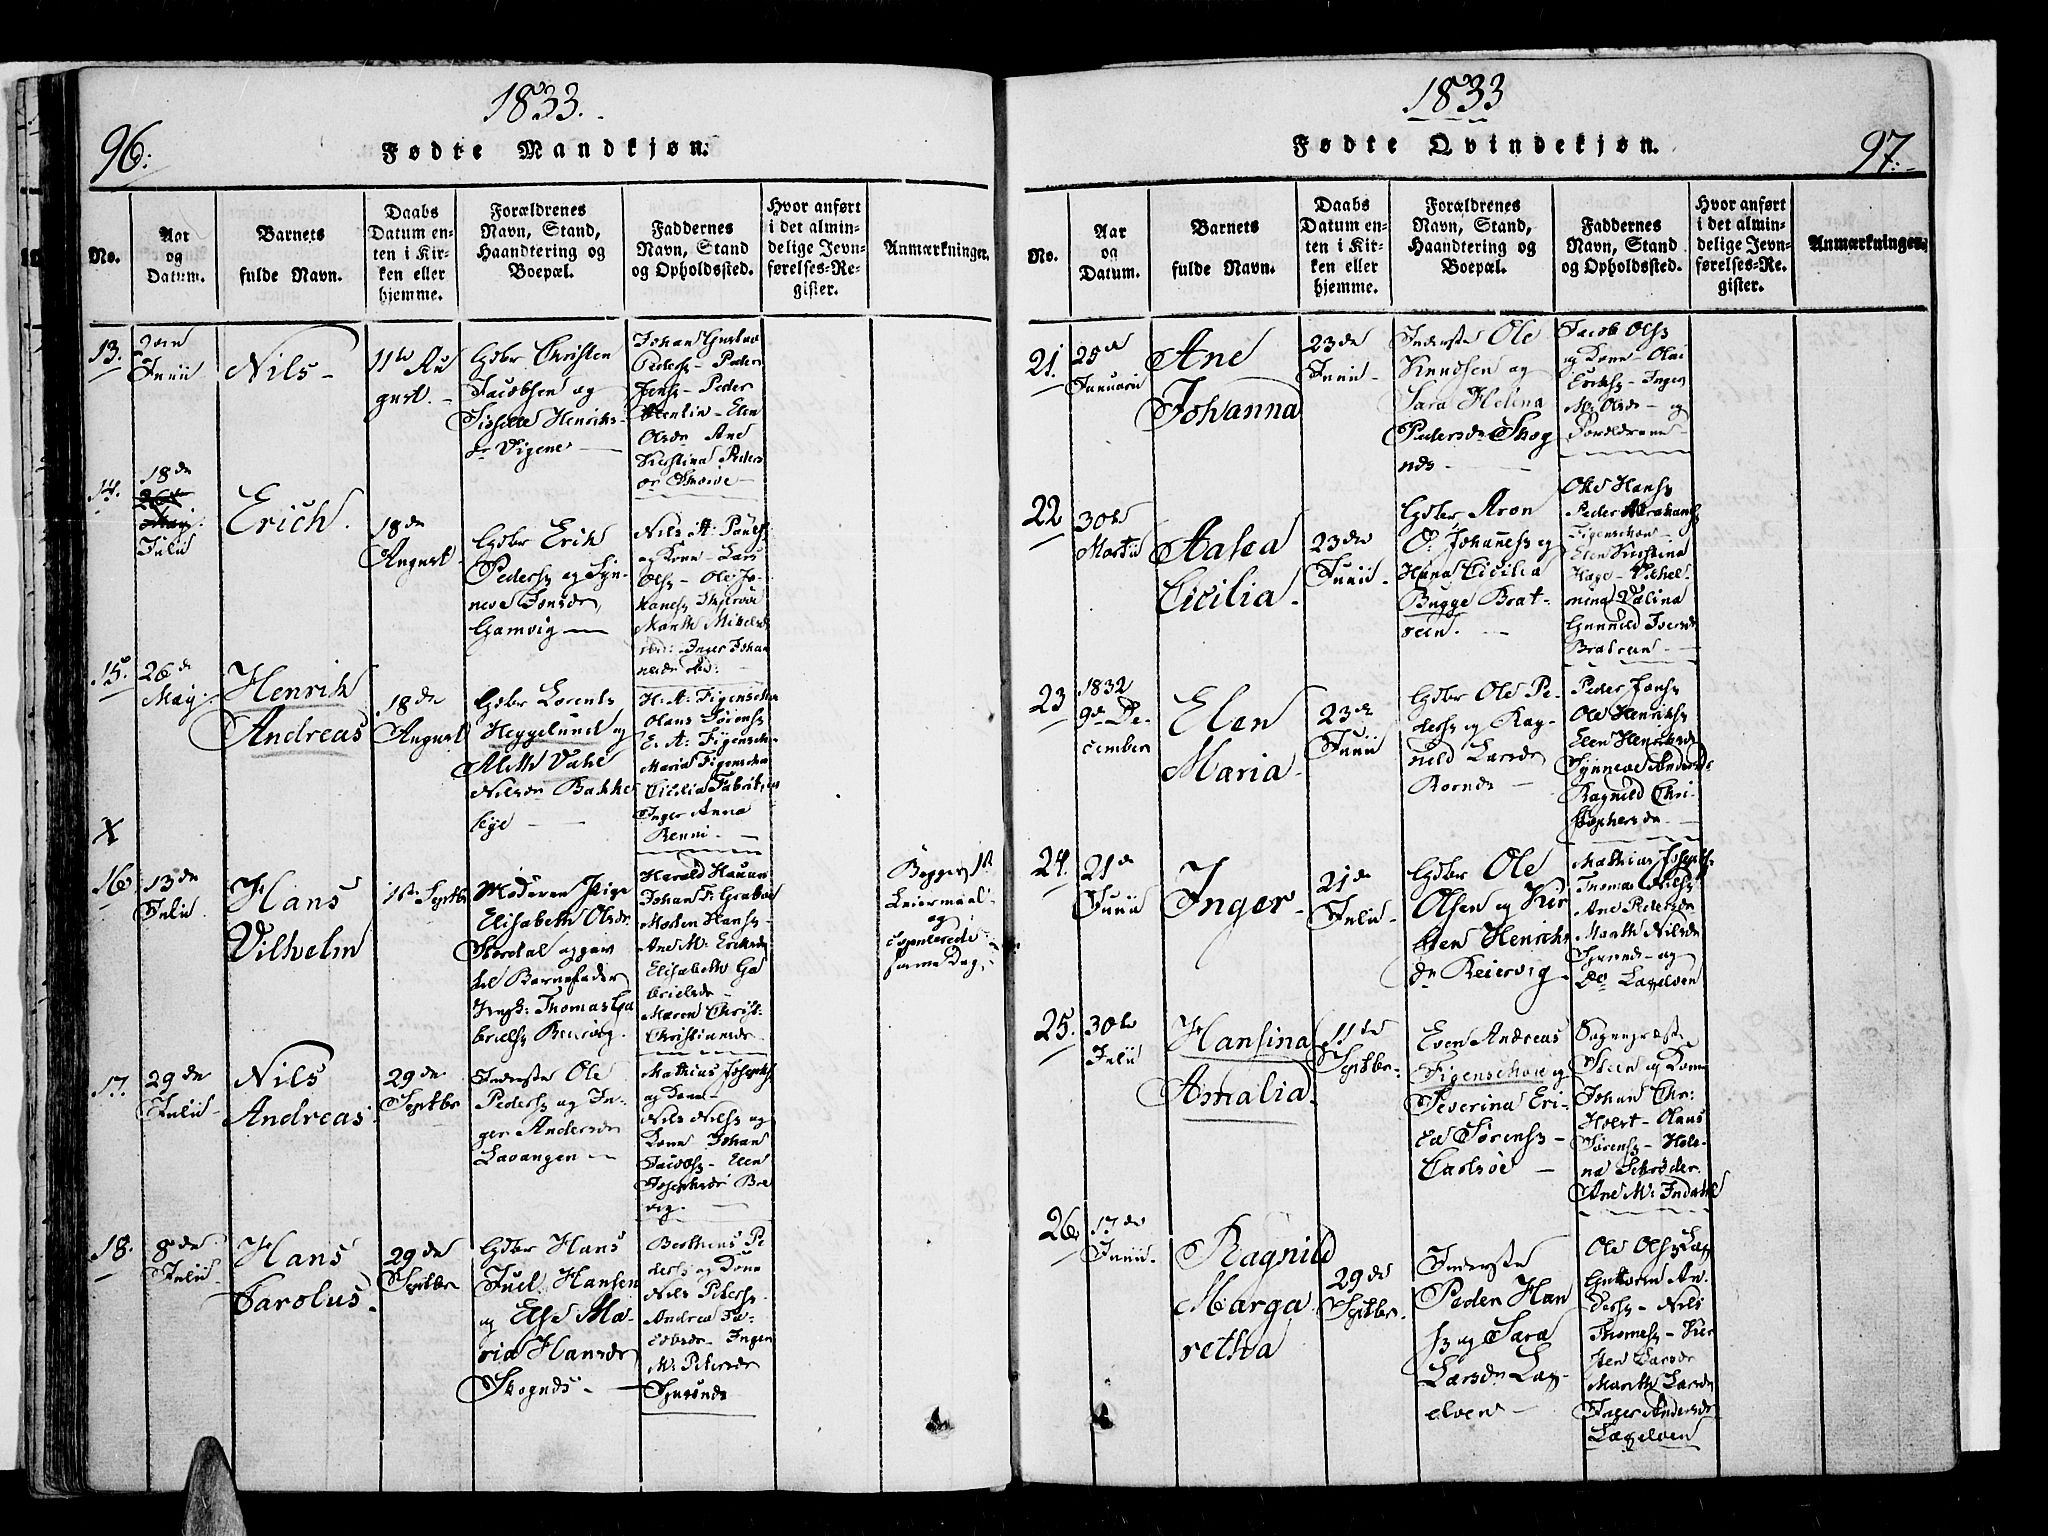 1833.
96.
Fødte Mandkjøn.
No.
Aar
og
Datum.
Barnets
fulde Navn.
Daabs
Datum en-
ten i Kir-
ken eller
hjemme.
Forældrenes
Navn, Stand,
Haandtering og
Boepæl.
Faddernes
Navn, Stand
og Opholdssted.
Hvor anført
i det almin-
delige Jevn-
førelses-Re-
gister.
Anmærkninger.
13.
Junii
Nils
11te Au
gust.
Gdbr Christen
Jacobsen og
Henriks-
dr Vigene
Johan Gustav
Peders - Peder
Jens - Peder
Elen
Olsdr Ane
Kirstina Peders
14.
18de
Julii
Erich.
18de
August
Gdbr Erik
Peders og Syn-
neve Jonsdr
Gamvig
Nils A. Pauls
og Kone Lars
Ols - Ole Jo-
hanes
Marith Mikelsdr
Inger Johan
15.
26de
May.
Henrik
Andreas
18de
August
Gdbr Lorents
Heggelund og
Nilsdr Bakke
bye
H. A. Figenschou
Hans Sørens
E. A. Figensch
Maria Figenschou
Cicilia Fabritius
Inger Anna
X
16
13de
Julii.
Hans
Vilhelm
1ste Septbr
Moderen Pige
Elisabeth Olsdr
Storedal opgav
til Barnefader
Thomas Ga
briels
Harald Hauan
Johan F. Grabow
Morten Hans
Ane M. Eriksdr
Elisabeth Ga
brielsdr
Maren Christ:
Christiansdr
Begges 1ste
Leiermaal
og
copulerede
samme Dag.
17.
29de
Julii
Nils
Andreas.
29de
Septbr
Inderste Ole
Peders og In-
ger Andersdr
Lavangen
Mathias Joseph
og Kone
Nils Nils og
Kone Johan
Jacobs - Elen
Josephsdr Bre
vig.
18.
8de
Julii
Hans
Jarolus.
29de
Septbr
Gdbr Hans
Juel Hansen
og Else Ma-
ria Hansdr
Skognæs
Berthius Pe
ders og Kone
Nils Peders
Andrea Ja-
cobsdr - Inger
M. Petersdr
1833
97.
Fødte Qvindekjøn.
No.
Aar
og
Datum.
Barnets
fulde Navn.
Daabs
Datum en-
ten i Kir-
ken eller
hjemme.
Forældrenes
Navn, Stand,
Haandtering og
Boepæl.
Faddernes
Navn, Stand
og Opholdssted.
Hvor anført
i det almin-
delige Jevn-
førelses-Re-
gister.
Anmærkninger.
21.
25de
Januarii
Ane
Johanna
23de
Junii
Inderste Ole
Knudsen og
Sara Helena
Pedersdr Skog
næs
Jacob Ols
og Kone - Olai
Eriks - Inger
M. Olsdr - og
Forældrene
22
30te
Martii
Aalea
Cicilia.
23de
Junii
Gdbr Aron
O. Johannes og
Hana Cicilia
Bugge Brat-
rein.
Ole Hans
Peder Abraham
Figenschou
Elen Kirstina
Hage - Vilhel-
mina
Gunnild Iversdr
Bratrein
23
1832
9de De-
cember
Elen
Maria
23de
Junii
Gdbr Ole Pe-
ders og Rag-
nild Larsdr
Peder Jons
Ole Henriks
Elen Henriksdr
Synneve Andersdr
Ragnild Chri-
stophersdr
24.
21de
Junii
Inger
21de
Julii
Gdbr Ole
Olsen og Kir
sten Henriks
dr Reiervig
Mathias Joseph
Thomas Nils
Ane Pedersdr
Marith Nilsdr
og
Lagelven
25.
30te
Julii
Hansina
Amalia.
11te
Septbr.
Even Andreas
Figenschou og
Severina Eri-
ca Sørens
Carlsøe
Sognepræst
Steen og Kone
Johan Chr.
Holst - Claus
Sørens - Hele-
na Schrøder
Ane M. Indahl
26
17de
Junii.
Ragnild
Marga
retha
29de
Septbr.
Inderste
Peder Han
s og Sara
Larsdr Lag-
elven
Ole Ols Lag
Guttorm An-
ders - Nils
Thomes - Kir
sten Larsdr
Marith Larsdr
Inger Andersdr
Lagelven